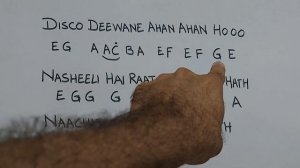 DISCO DEEWANE AHAN AHAN HOOO
EG A AĊ BA EF EF G E
NASHEELI HAI RAAT HATH
EGG G A
NAACH H